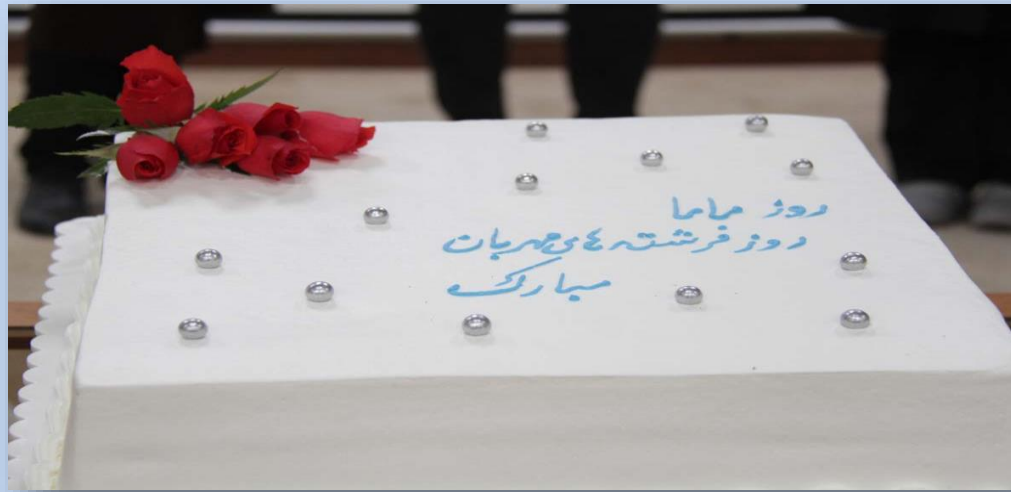 روز ماما
روز فرشته های مهربان
مبارک